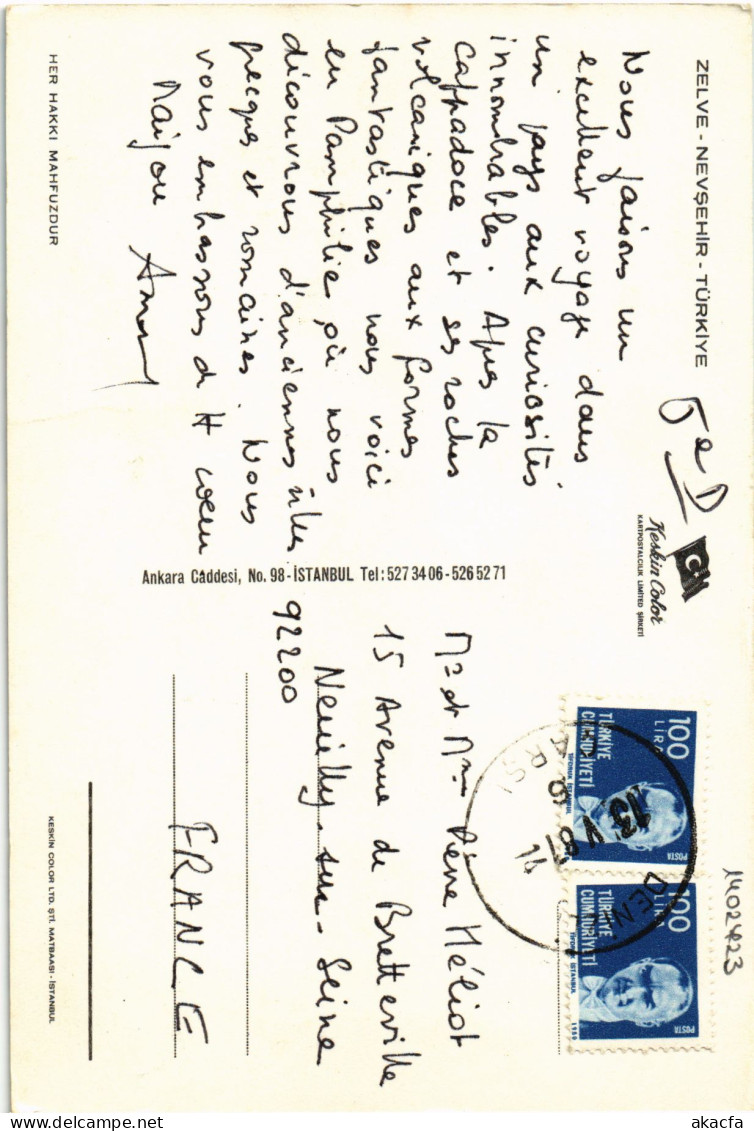 ZELVE - NEVŞEHİR - TÜRKİYE
Nous faisons un
excellent voyage dans
un pays aux curiosités
innombrables. Apres la
cappadoce et ses roches
volcaniques aux formes
fantastiques nous voici
en Pamphilie où nous
découvrons d'anciennes
grecques et romaines. Nous
vous embrassons de tt coeur
HER HAKKI MAHFUZDUR
5e D
Keskin Color
KARTPOSTALCILIK LIMITED ŞİRKETİ
Ankara Caddesi, No. 98 - İSTANBUL Tel: 527 34 06 - 526 52 71
Mr et Mme Pierre Héliot
15 Avenue de Bretteville
92200
Neuilly-sur-Seine
FRANCE
KESKİN COLOR LTD. ŞTİ. MATBAASI - İSTANBUL
100
LİRA
TÜRKİYE
CUMHURİYETİ
POSTA
100
LİRA
TÜRKİYE
CUMHURİYETİ
POSTA
1980
ÇARŞI
13 V 81
14
DENİ
1402423
akacfa
www.akacfa.com